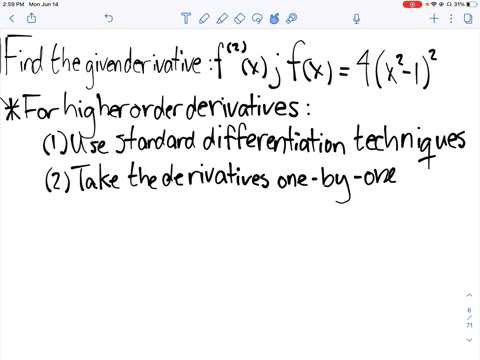 2:59 PM Mon Jun 14
31%
Find the given derivative: f⁽²⁾(x); f(x) = 4(x²-1)²
*For higher order derivatives:
(1) Use standard differentiation techniques
(2) Take the derivatives one-by-one
6
/
71